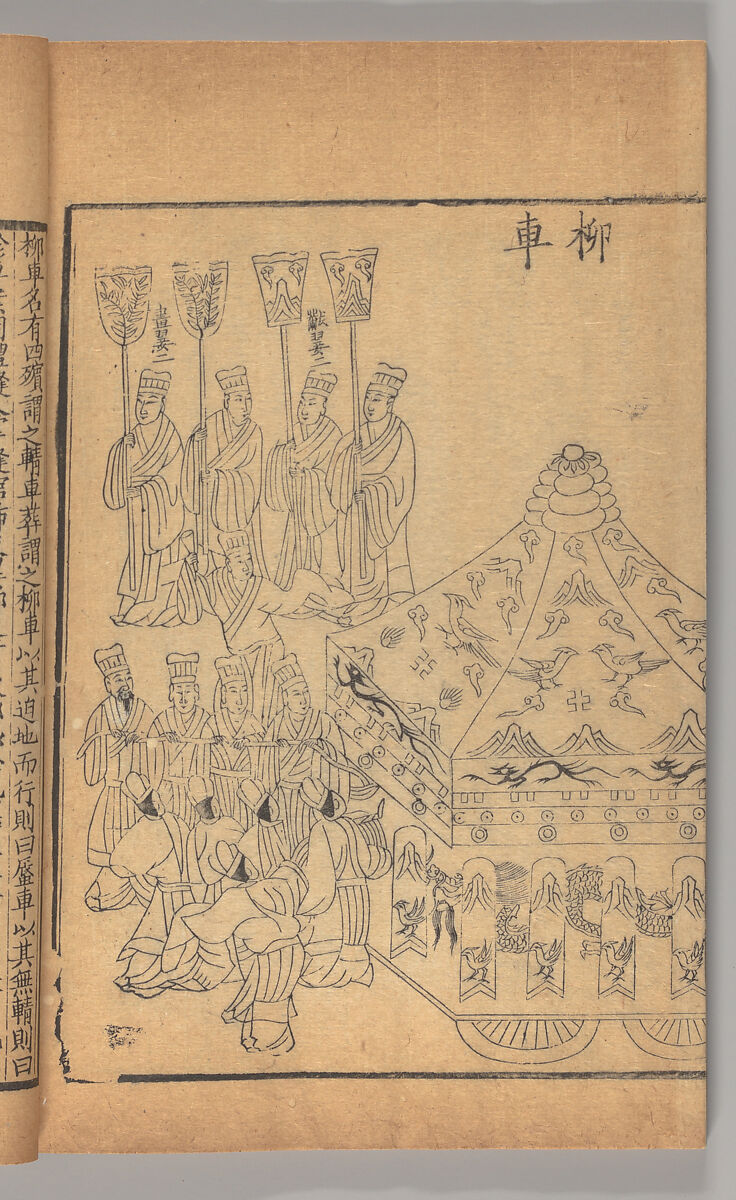 柳車
黻翣二
畫翣二
柳車名有四殯謂之輤車葬謂之柳車以其迫地而行則曰蜃車以其無輤則曰